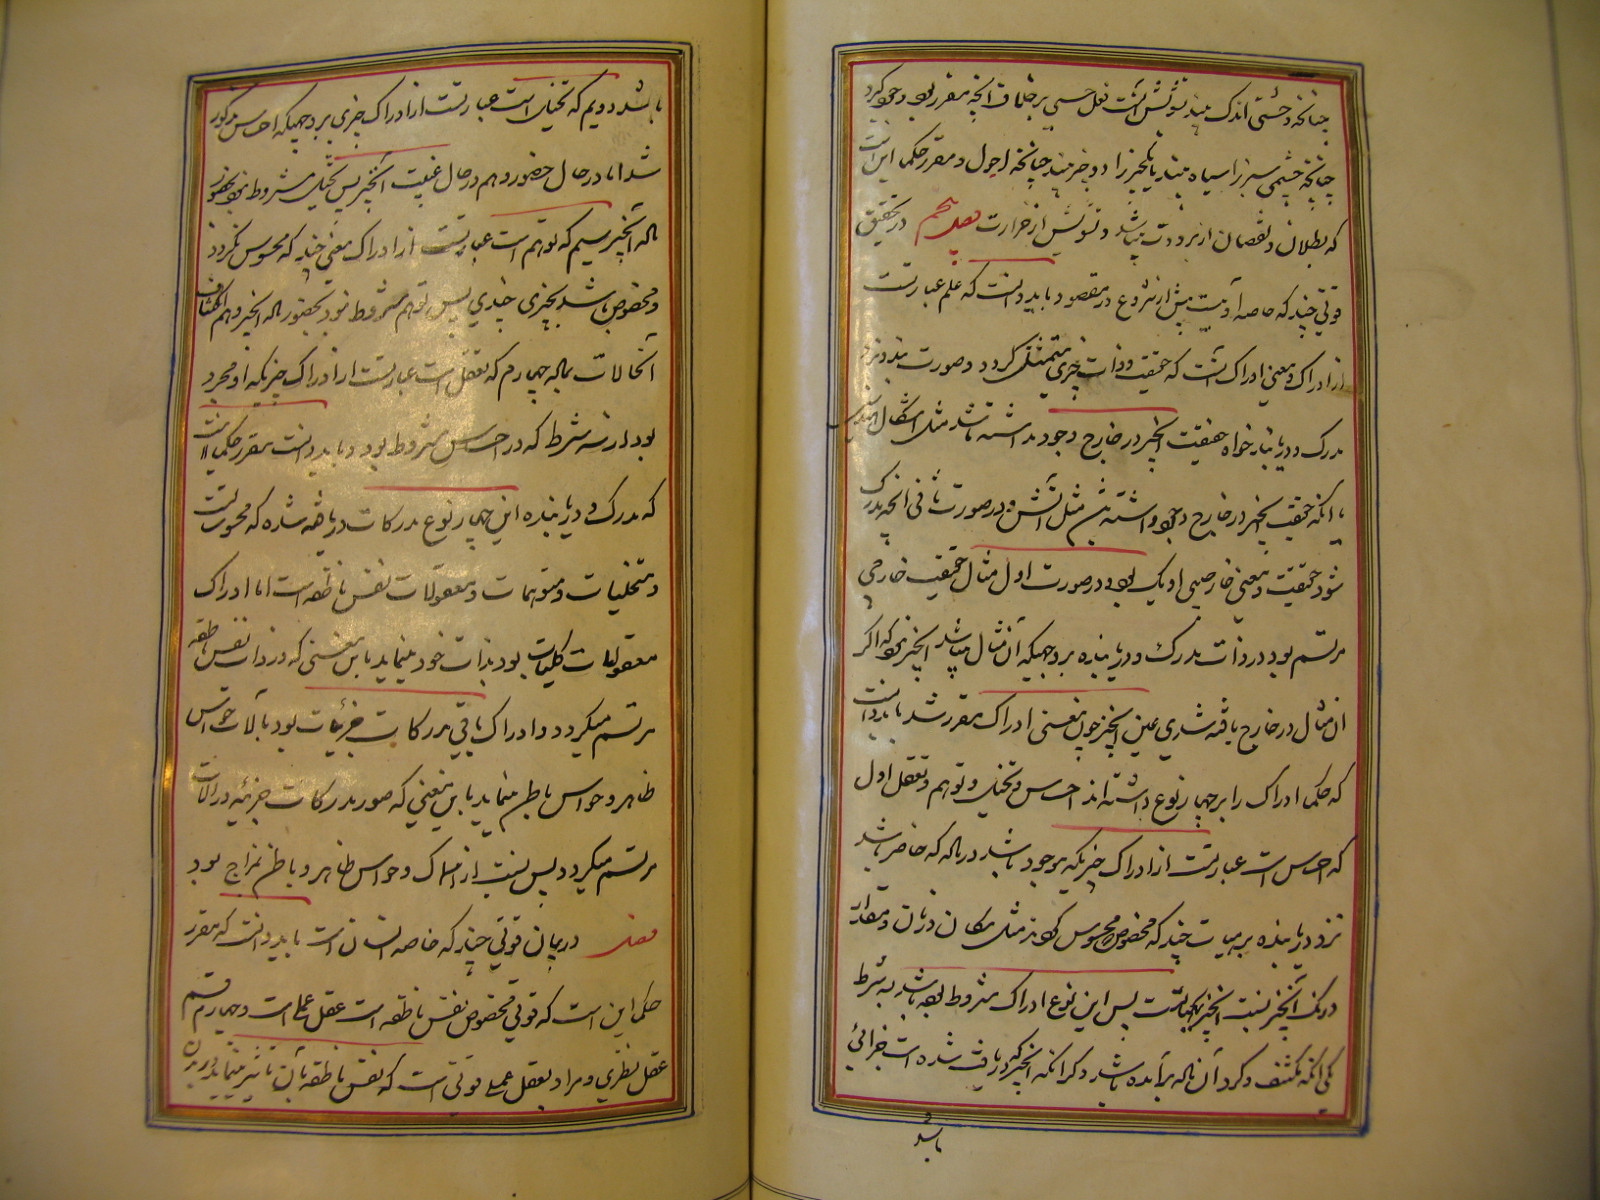 چنانچه وحشتی اندک بیند تشوش آنست فعل حسی بر خلاف آنچه مقرر بود وجود گیرد
چنانچه چشمی سبز را سیاه بیند یا یکچیز را دو چیز بیند چنانچه احول و مقرر حکما این است
که بطلان و نقصان از برودت میباشد و تشوش از حرارت فصل پنجم در تحقیق
قوتی چند که خاصه آدمیست پیش از شروع در مقصود باید دانست که علم عبارتست
از ادراک و معنی ادراک آنست که حقیقت و ذات چیزی متمثل گردد و صورت بندد نزد
مدرک و دریابنده خواه حقیقت آنچیز در خارج وجود نداشته باشد مثل اشکال هندسی
یا آنکه حقیقت آنچیز در خارج وجود داشته باشد مثل آتش و در صورت ثانی آنچه مدرک
شود حقیقت و معنی خارجی او یک بود و در صورت اول مثال حقیقت خارجی
مرتسم بود در ذات مدرک و دریابنده بر وجهیکه آن مثال مباشد آنچیز بود که اگر
آن مثال در خارج یافته شدی عین آنچیز چون معنی ادراک مقرر شد باید دانست
که حکما ادراک را بر چهار نوع داشته اند احساس و تخیل و توهم و تعقل اول
که احساس است عبارتست از ادراک چیزیکه موجود باشد در ماله که حاضر باشد
نزد دریابنده بر هیات چند که مخصوص محسوس بود مثل مکان و زمان و مقدار
درنک آنچیز نسبت آنچیز بکجاست پس این نوع ادراک مشروط بود باشد به شرط
یکی آنکه مکتنف و گرد آن ماله برآمده باشد دیگر آنکه آنچیز که دریافت شده است جزئی
باشد
باشد دویم که تخیل است عبارتست از ادراک چیزی بر وجهیکه احساس مذکور
شد اما در حال حضور و هم در حال غیبت آنچیز پس تخیل مشروط نبود بحضور
ماله آنچیز سیم که توهم است عبارتست از ادراک معنی چند که محسوس نگردد
و مخصوص باشد بچیزی چندی پس توهم مشروط نبود بحضور ماله آنچیز و هم اکتناف
آنحالات بماله چهارم که تعقل است عبارتست از ادراک چیزیکه او مجرد
بود از سه شرط که در احساس مشروط بود و باید دانست مقرر حکما آنست
که مدرک و دریابنده این چهار نوع مدرکات دریافته شده که محسوسات
و متخیلات و متوهمات و معقولات نفس ناطقه است اما ادراک
معقولات کلیات بود بذات خود مینماید باین معنی که در ذات نفس ناطقه
مرتسم میگردد و ادراک باقی مدرکات جزئیات بود بآلات حواس
ظاهر و حواس باطن مینماید باین معنی که صور مدرکات جزئیه در آلات
مرتسم میگردد پس نسبت ادراک و حواس ظاهر و باطن بمزاج بود
فصل در بیان قوتی چند که خاصه انسان است باید دانست که مقرر
حکما این است که قوتی مخصوص نفس ناطقه است عقل عملی است و چهارم قسم
عقل نظری و مراد بعقل عملی قوتی است که نفس ناطقه بآن تاثیر مینماید در بدن